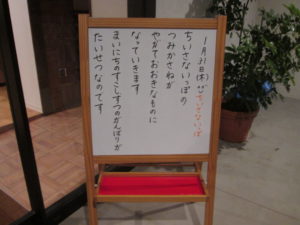 1月31日(木) ちいさないっぽ
ちいさないっぽの
つみかさねが
やがておおきなものに
なっていきます
まいにちのすこしずつのがんばりが
たいせつなのです